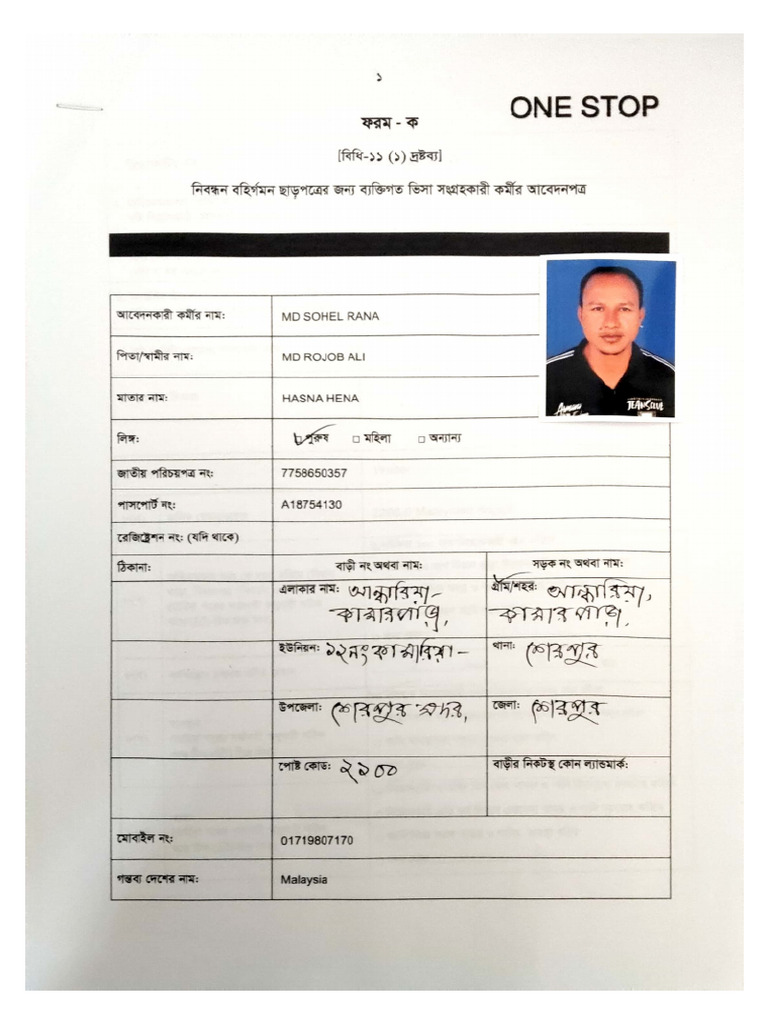 ১
ONE STOP
ফরম - ক
[বিধি-১১ (১) দ্রষ্টব্য]
নিবন্ধন বহির্গমন ছাড়পত্রের জন্য ব্যক্তিগত ভিসা সংগ্রহকারী কর্মীর আবেদনপত্র
আবেদনকারী কর্মীর নাম: MD SOHEL RANA
পিতা/স্বামীর নাম: MD ROJOB ALI
মাতার নাম: HASNA HENA
লিঙ্গ: পুরুষ □ মহিলা □ অন্যান্য
জাতীয় পরিচয়পত্র নং: 7758650357
পাসপোর্ট নং: A18754130
রেজিষ্ট্রেশন নং: (যদি থাকে)
ঠিকানা: বাড়ী নং অথবা নাম: সড়ক নং অথবা নাম:
এলাকার নাম: আন্ধারিয়া- গ্রাম/শহর: আন্ধারিয়া,
কামারপাড়া, কামারপাড়া,
ইউনিয়ন: ১২নং কামারিয়া- থানা: শেরপুর
উপজেলা: শেরপুর সদর, জেলা: শেরপুর
পোষ্ট কোড: ২১০০ বাড়ীর নিকটস্থ কোন ল্যান্ডমার্ক:
মোবাইল নং: 01719807170
গন্তব্য দেশের নাম: Malaysia